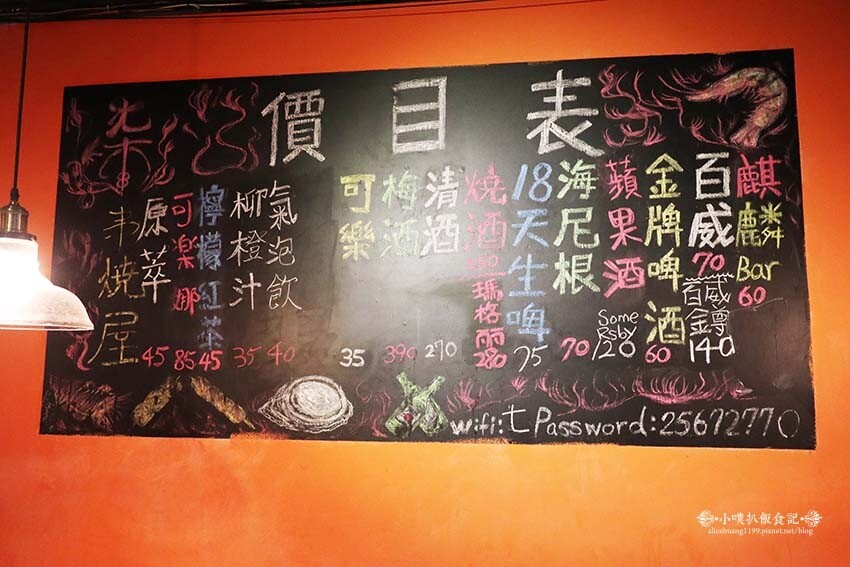 價目表
麒麟Bar 60
百威 70
百威金罇 140
金牌啤酒 60
蘋果酒 Somersby 120
海尼根 70
18天生啤 75
燒酒 250
瑪格麗 280
清酒 270
梅酒 390
可樂 35
氣泡飲 40
柳橙汁 35
檸檬紅茶 45
可樂娜 85
原萃 45
柒
串燒屋
wifi:七 Password:25672770
小噗扒飯食記
alicehuang1199.pixnet.net/blog